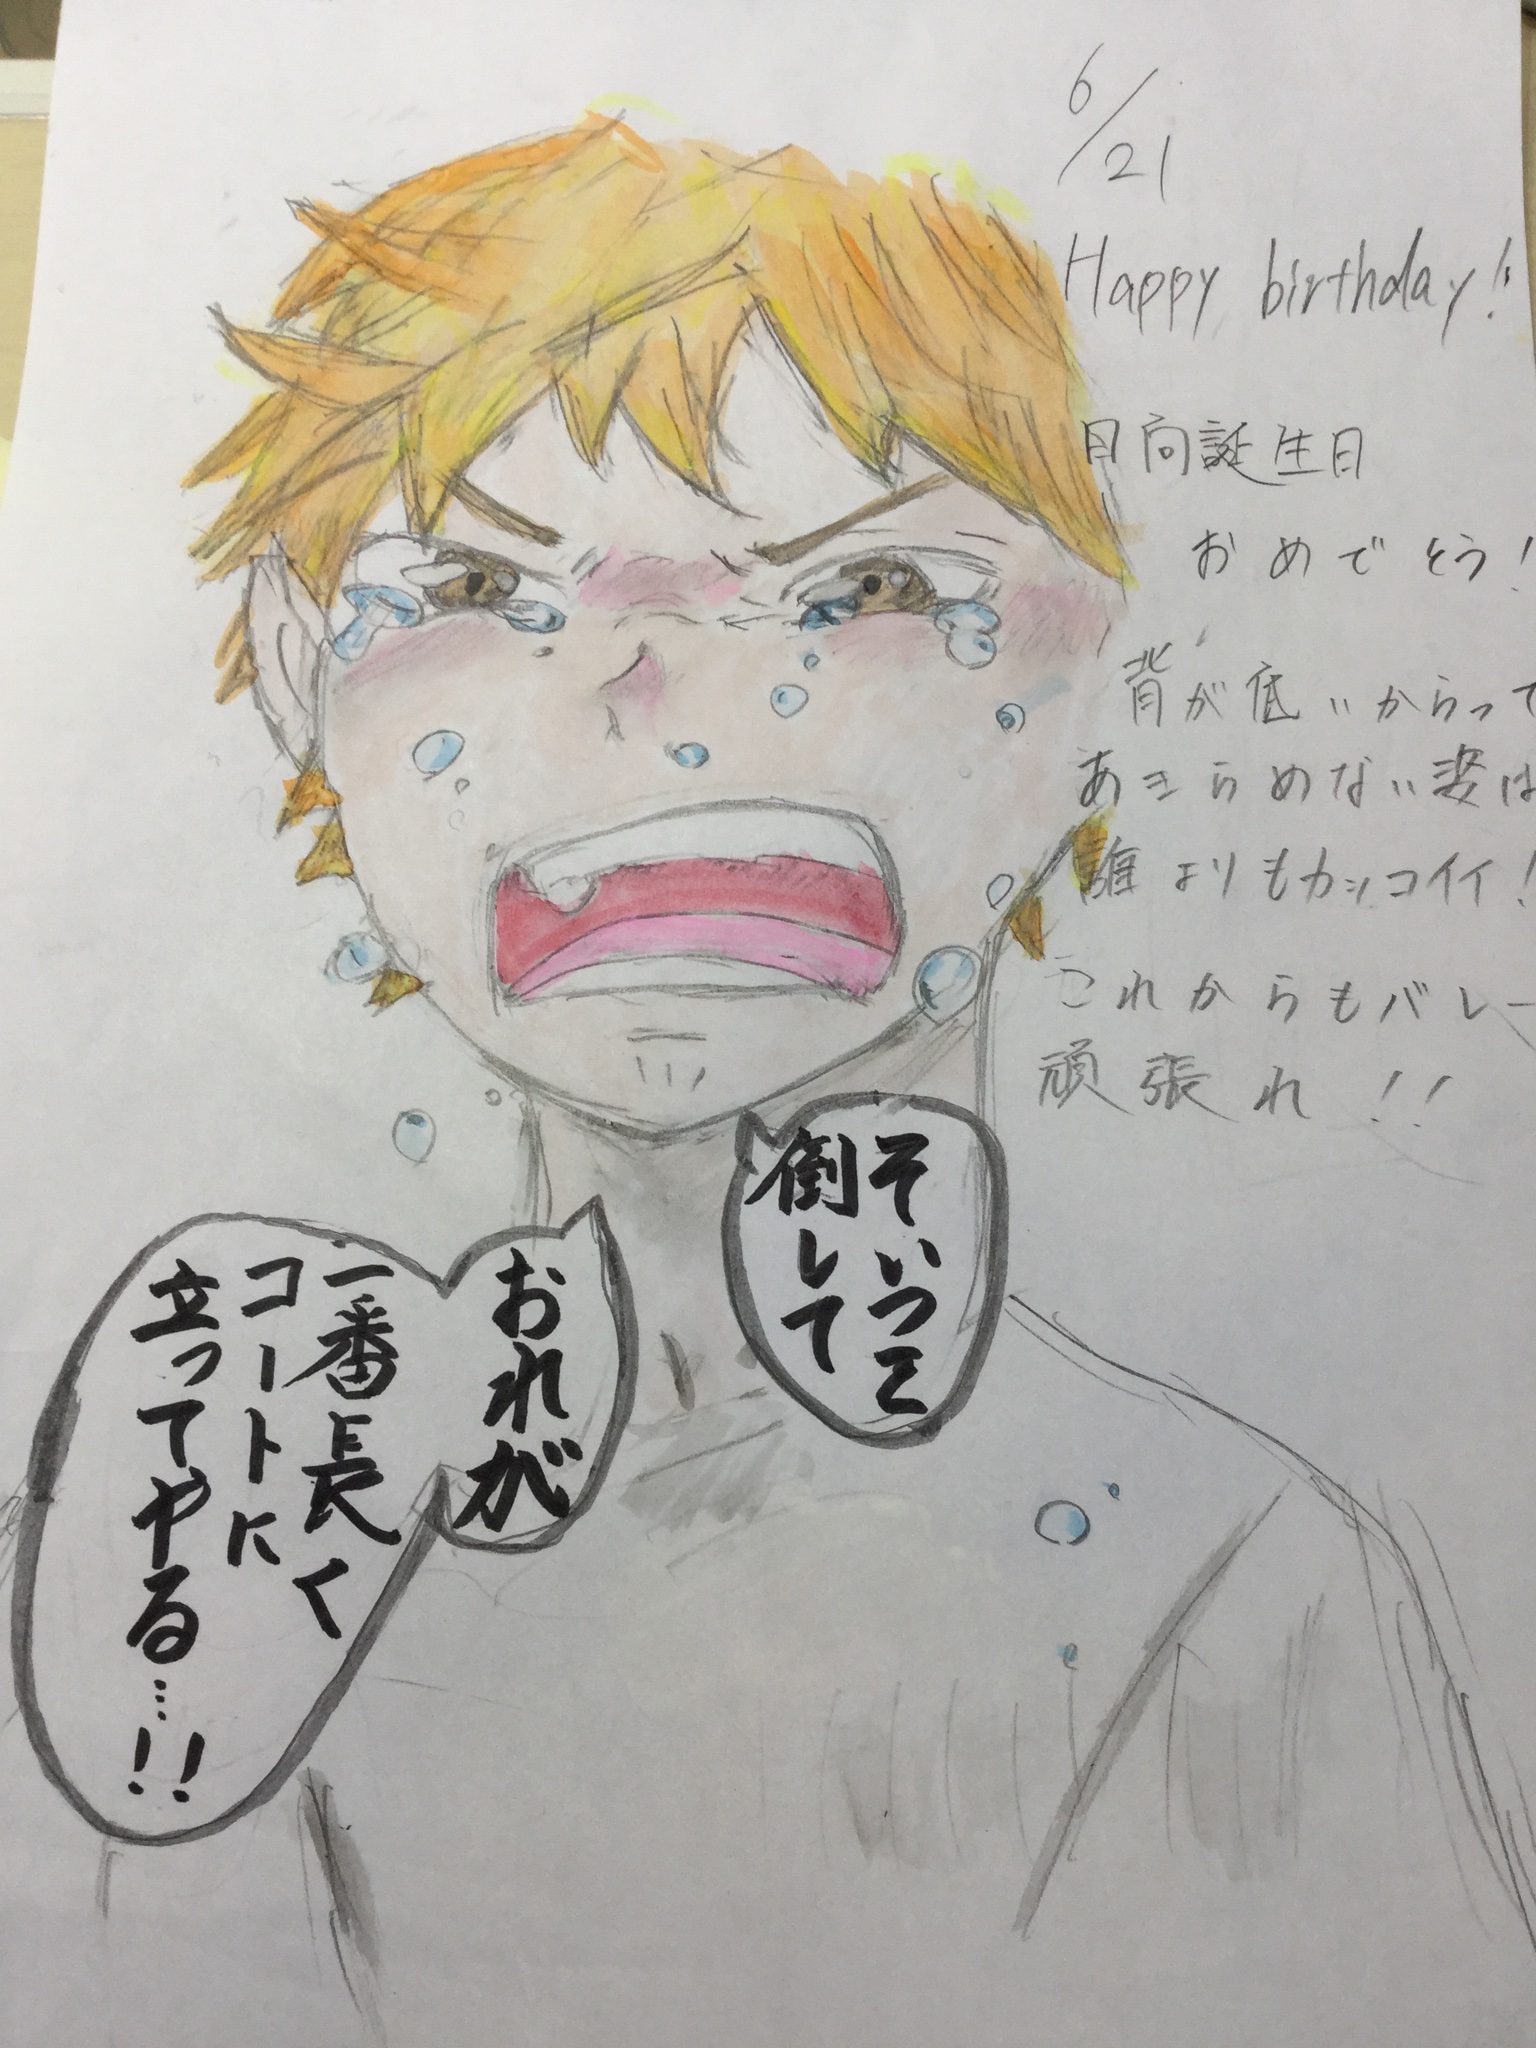 6/21
Happy birthday!
日向誕生日
おめでとう!
背が低いからって
あきらめない姿は
誰よりもカッコイイ!
これからもバレー
頑張れ!!
そいつを
倒して
おれが
一番長く
コートに
立ってやる…!!